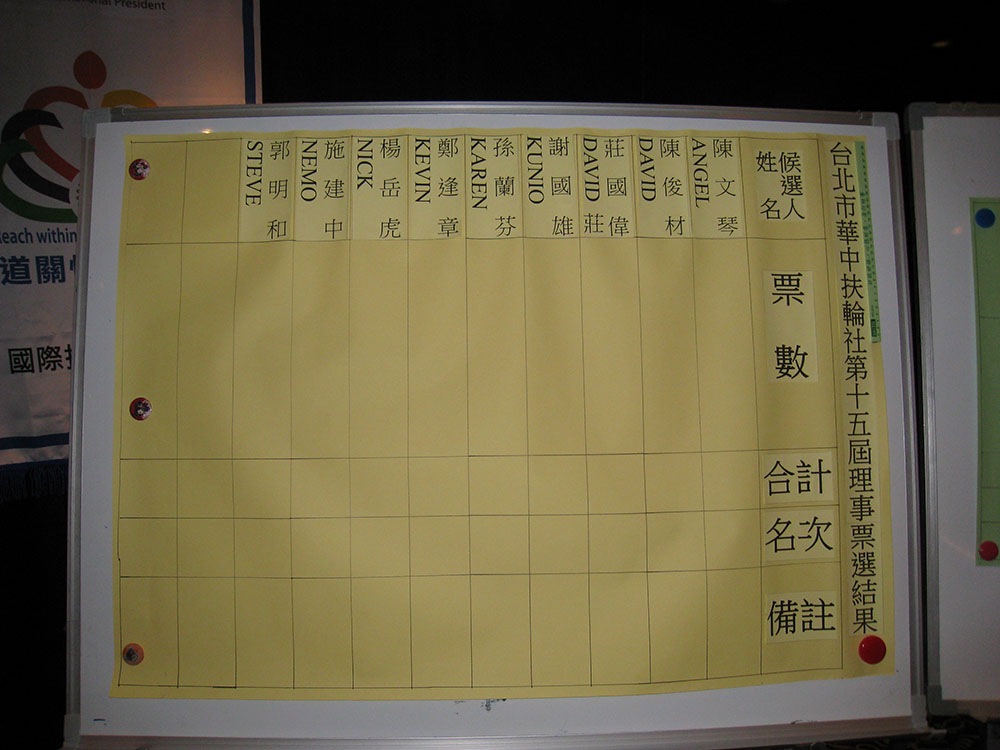 台北市華中扶輪社第十五屆理事票選結果
候選人
姓名
票數
合計
名次
備註
陳文琴
ANGEL
陳俊材
DAVID
莊國偉
DAVID 莊
謝國雄
KUNIO
孫蘭芬
KAREN
鄭逢章
KEVIN
楊岳虎
NICK
施建中
NEMO
郭明和
STEVE
President
each within
道關
國際